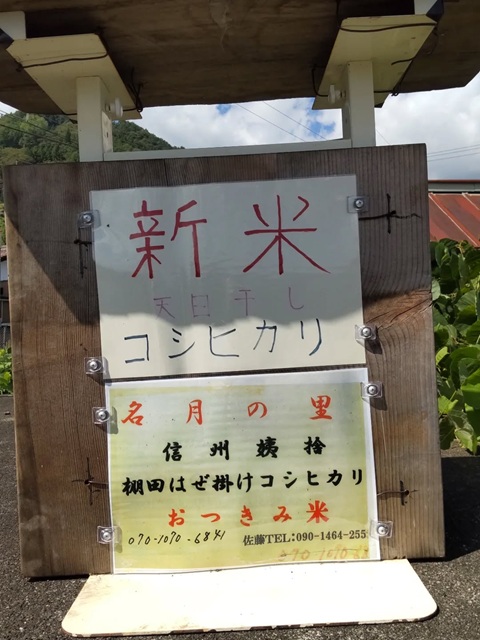 新米
天日干し
コシヒカリ
名月の里
信州姨捨
棚田はぜ掛けコシヒカリ
おつきみ米
070-1070-6841 佐藤TEL:090-1464-255